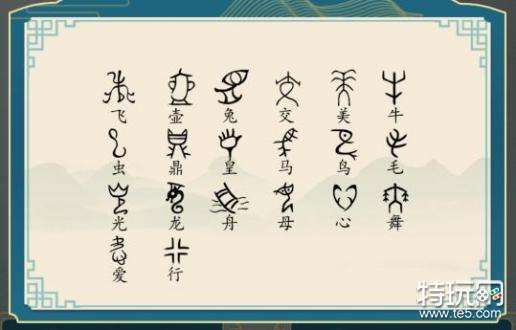 飞 壶 兔 交 美 牛
虫 鼎 皇 马 鸟 毛
光 龙 舟 母 心 舞
爱 行
特玩网
www.te5.com